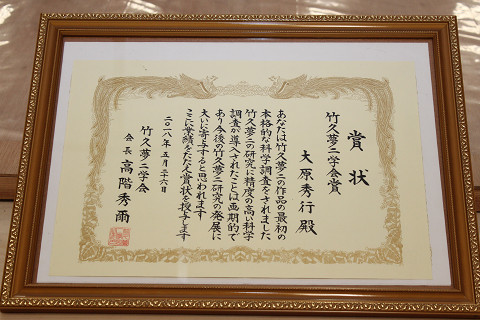 賞状
竹久夢二学会賞
大原秀行殿
あなたは竹久夢二の作品の最初の
本格的な科学調査をされました
竹久夢二の研究に精度の高い科学
調査が導入されたことは画期的で
あり今後の竹久夢二研究の発展に
大いに寄与すると思われます
ここに業績をたたえ賞状を授与します
二〇一八年五月二十六日
竹久夢二学会
会長 高階秀爾